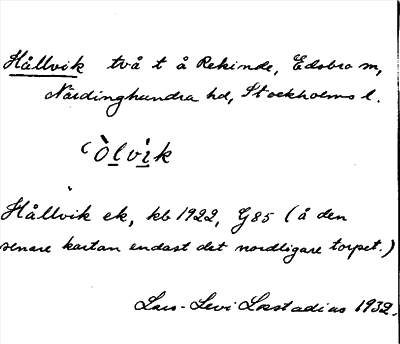 Hållvik två t å Rekinde, Edsbro sn,
Närdinghundra hd, Stockholms l.
ὸlvik
Hållvik ek, kb 1922, G85 (å den
senare kartan endast det nordligare torpet.)
Lars-Levi Læstadius 1932.